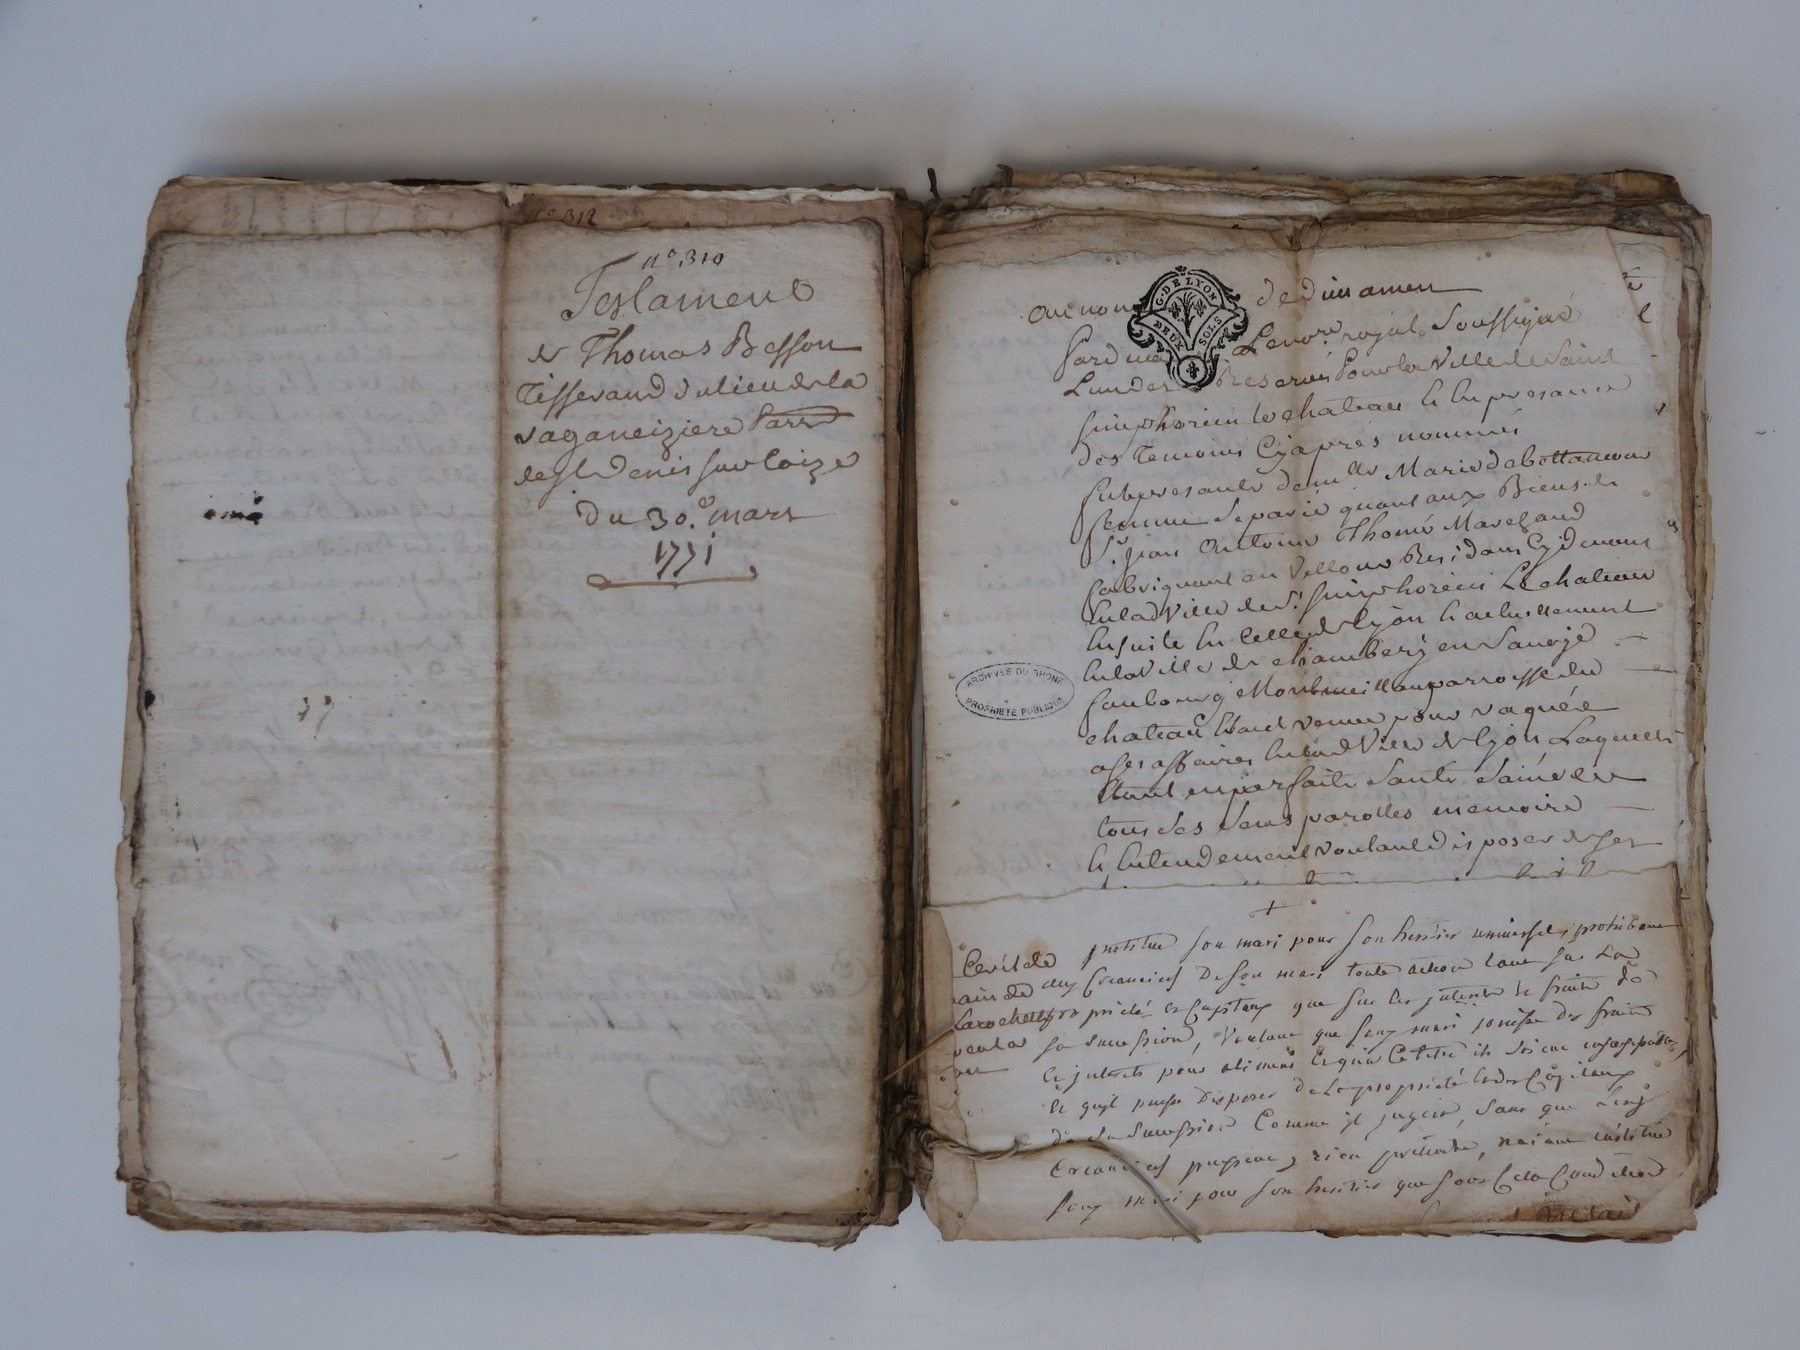 n.o 312
n.o 310
Testament
de Thomas Besson
Tisserand du lieu de la
vaganeiziere Parr
de St Denis sur Coize
du 30.e mars
1771
Au nom de dieu amen
Pardevant Le no.re royal Soussigné
Reservé Pour la Ville de Saint
simphorien le chateau et En presance
des Temoins Cy apres nommés
fut presante dem.lle Marie
femme separée quant aux Biens de
S.r jean Antoine Thomé Marchand
fabriquant en Vellour Residant Cy devant
En lad Ville de S.t simphorien Le chateau
Ensuite En Celle de Lyon et actuellement
En la Ville de chambery en Savoye
faubourg Montmeillan parroisse du
chateau Etant venue pour vaquer
a ses affaires En lad Ville de Lyon Laquelle
Etant en parfaite Santé Saine de
tous ses Sens parolles memoire
et Entendement voulant disposer de ses
G. DE LYON
DEUX SOLS
ARCHIVES DU RHONE
PROPRIETE PUBLIQUE
institue son mari pour son heritier universel, prohibant
aux Creanciers De son mari toute action tant sur La
proprieté et Capitaux que sur les interets et fruits de
sa succession, Voulant que son mari jouisse des fruits
et interets pour alimens et qu'a Ce titre ils soient
et qu'il puisse Disposer de La proprieté et des Capitaux
de sa succession Comme il jugera, sans que
Creanciers puissent y rien pretendre, n'aiant institué
son mari pour son heritier que sous Cette Condition